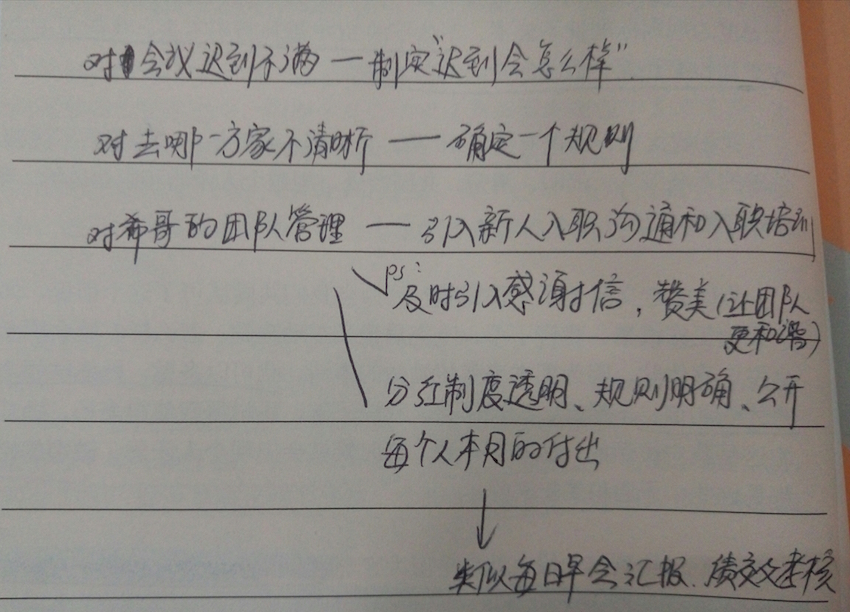 对会议迟到不满 — 制定"迟到会怎么样"
对去哪一方家不清晰 — 确定一个规则
对希哥的团队管理 — 引入新人入职沟通和入职培训
ps:
及时引入感谢信，赞美(让团队
更和谐)
分红制度透明、规则明确、公开
每个人本月的付出
↓
类似每日早会汇报、绩效考核